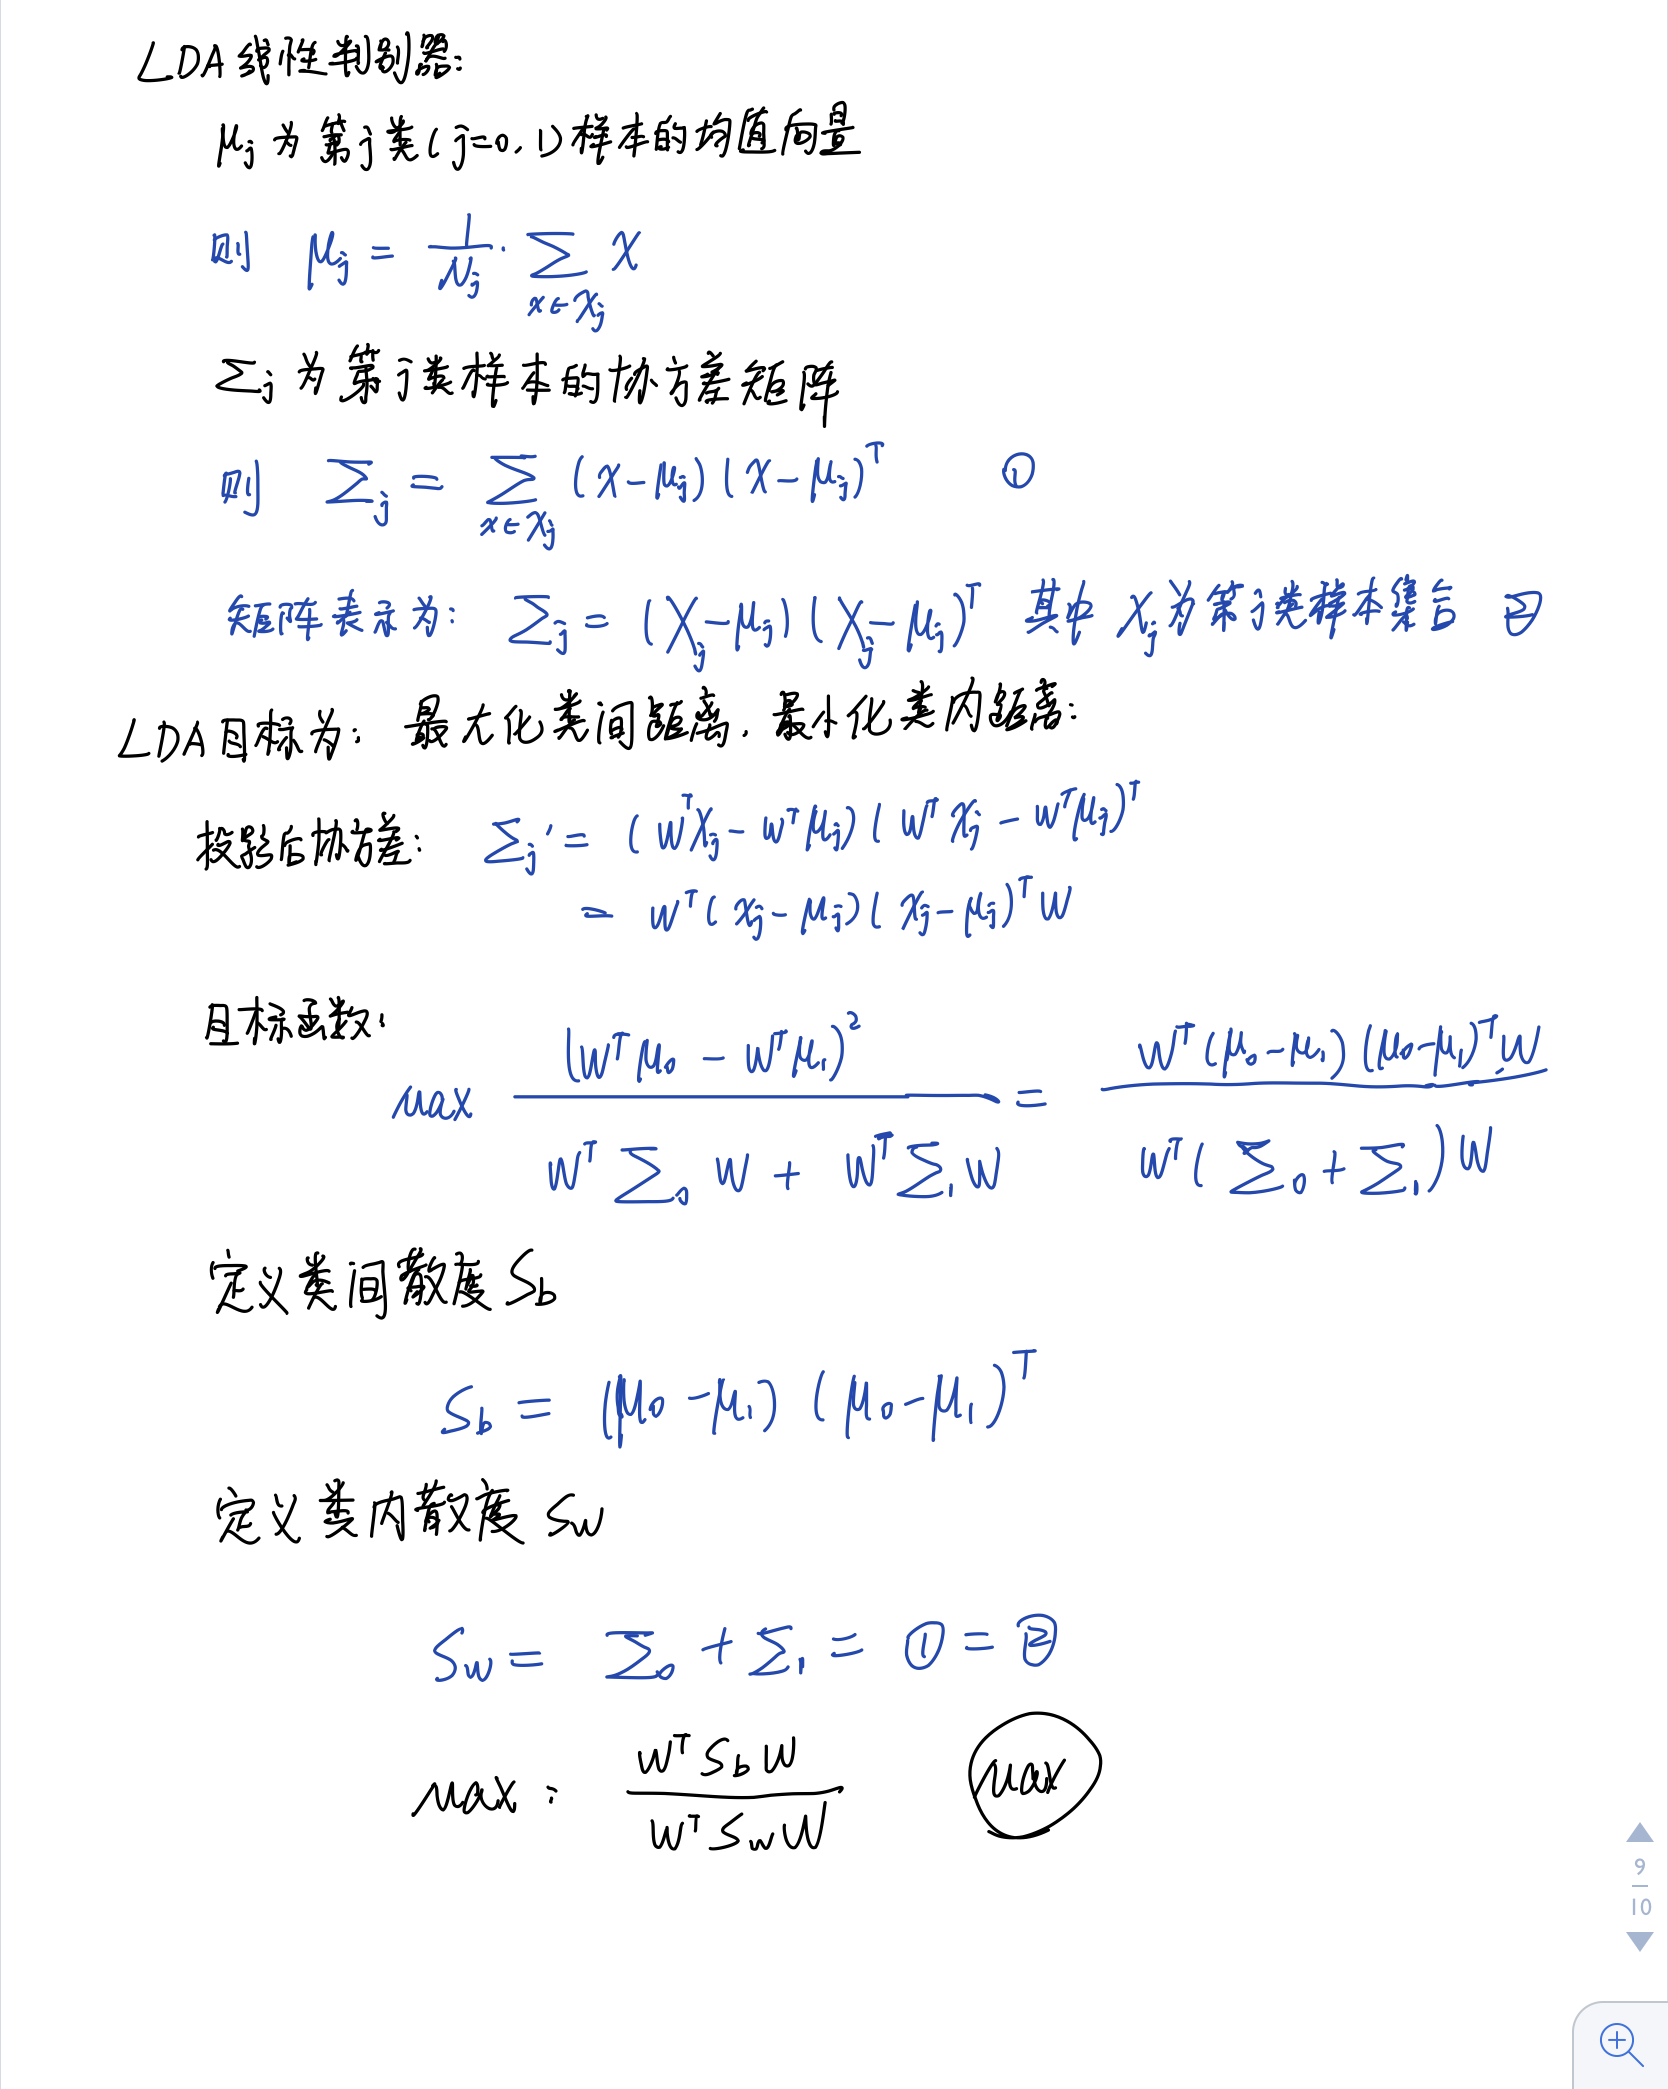 LDA 线性判别器:
μj 为第j类(j=0,1)样本的均值向量
则 μj = 1/Nj · ∑x∈Xj X
Σj 为第j类样本的协方差矩阵
则 Σj = ∑x∈Xj (X-μj)(X-μj)^T ①
矩阵表示为: Σj = (Xj-μj)(Xj-μj)^T 其中 Xj为第j类样本集合 ②
LDA目标为: 最大化类间距离, 最小化类内距离:
投影后协方差: Σj' = (W^T Xj - W^T μj)(W^T Xj - W^T μj)^T
= W^T(Xj-μj)(Xj-μj)^T W
目标函数:
max (W^T μ0 - W^T μ1)^2 / (W^T Σ0 W + W^T Σ1 W) = W^T(μ0-μ1)(μ0-μ1)^T W / W^T(Σ0+Σ1)W
定义类间散度 Sb
Sb = (μ0-μ1)(μ0-μ1)^T
定义类内散度 Sw
Sw = Σ0 + Σ1 = ① = ②
max: W^T Sb W / W^T Sw W max
9
10